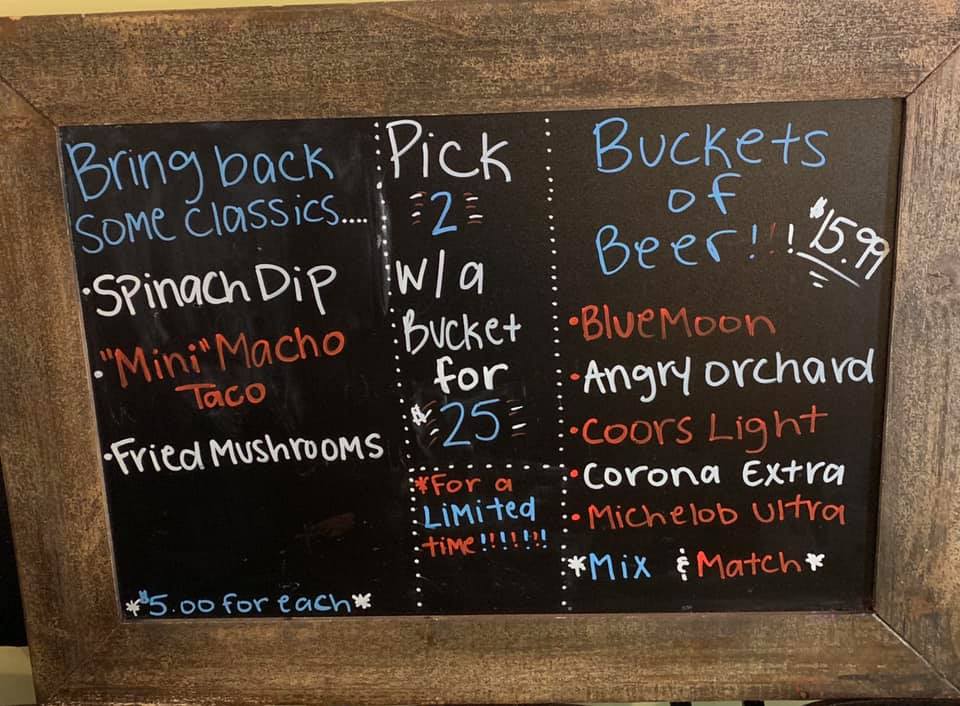 Bring back
some classics....
·Spinach Dip
·"Mini" Macho
Taco
·Fried Mushrooms
*$5.00 for each*
Pick
2
w/a
Bucket
for
$25
*For a
Limited
time!!!!!!!
Buckets
of
Beer!!! $15.99
·Blue Moon
·Angry Orchard
·Coors Light
·Corona Extra
·Michelob Ultra
*Mix & Match*